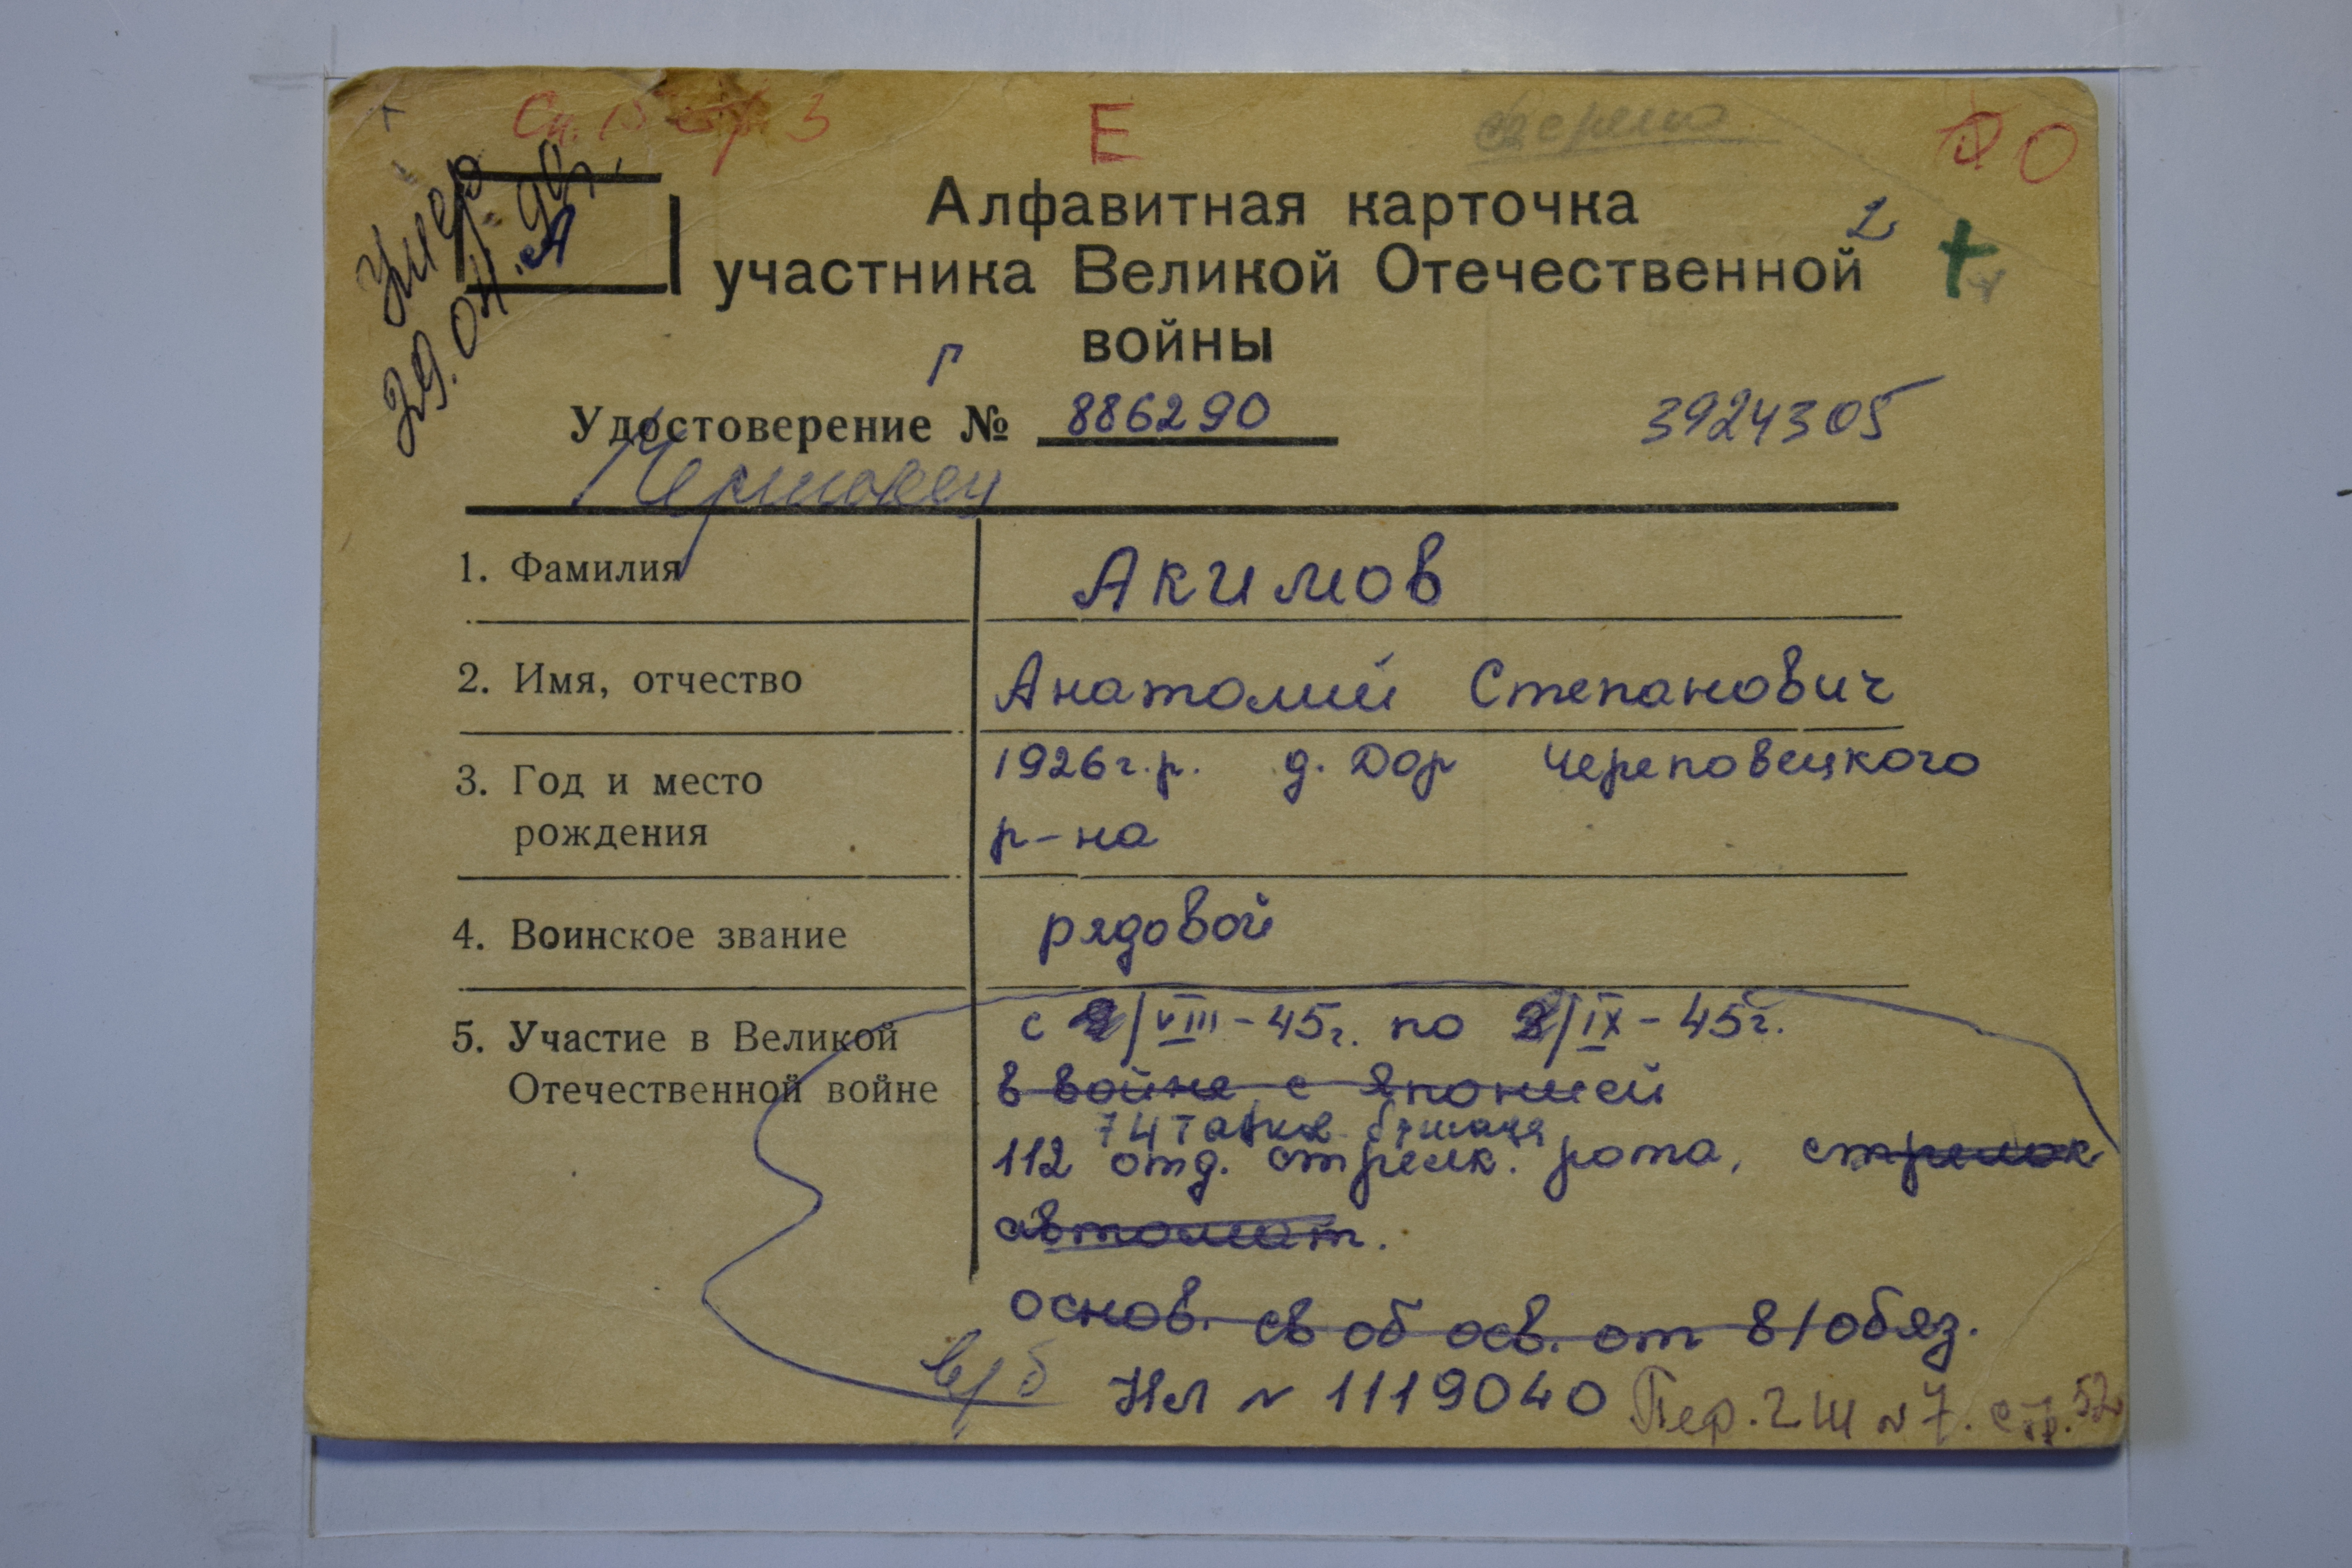 Сп. 15 стр 3
Е
сверено
О
Умер
29.04.90г.
А
Алфавитная карточка
2
участника Великой Отечественной
войны
Г
Удостоверение № 886290
3924305
1. Фамилия
Акимов
2. Имя, отчество
Анатолий Степанович
3. Год и место
рождения
1926г.р. д. Дор Череповецкого
р-на
4. Воинское звание
рядовой
5. Участие в Великой
Отечественной войне
с 9/VIII-45г. по 2/IX-45г.
в войне с Японией
74 танков бригада
112 отд. стрелк. рота, стрелок
автомат.
основ. св об осв. от в/обяз.
в/б
НЛ № 1119040
Пер. 2 Ш № 7. стр. 52